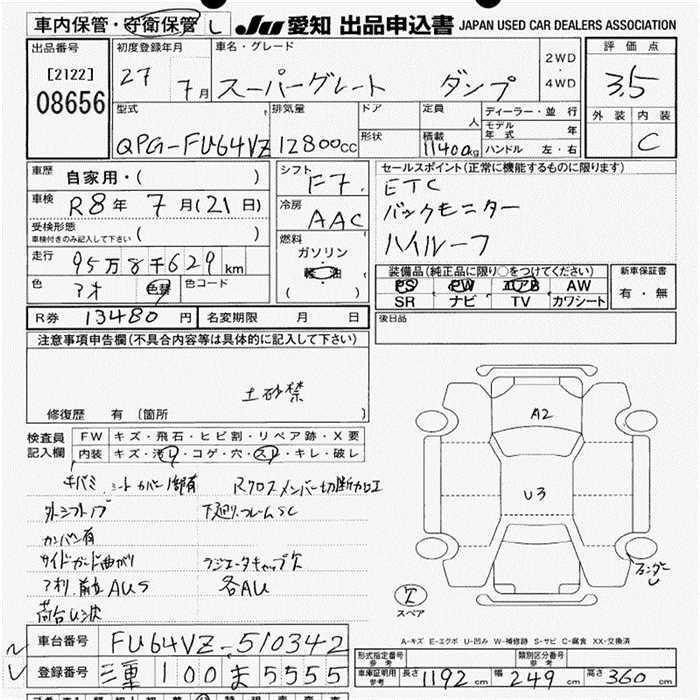 車内保管・守衛保管 L
JU 愛知 出品申込書 JAPAN USED CAR DEALERS ASSOCIATION
出品番号
[2122]
08656
初度登録年月
27 7月
車名・グレード
スーパーグレート ダンプ
2WD
・
4WD
評価点
3.5
外装 内装
C
型式
QPG-FU64VZ
排気量
12800cc
ドア
形状
定員
人
積載
11400kg
ディーラー・並行
モデル年式 年
ハンドル 左・右
車歴 自家用・( )
車検 R8年 7月(21日)
受検形態
車検付きのみ記入して下さい ( )
走行 95万8千629km
色 アオ 色替 色コード
シフト
F7
冷房
AAC
燃料
ガソリン
軽油
( )
セールスポイント(正常に機能するものに限り)
ETC
バックモニター
ハイルーフ
装備品(純正品に限り○をつけてください)
PS PW エアB AW
SR ナビ TV カワシート
新車保証書
有・無
R券 13480円 名変期限 月 日
後日品
注意事項申告欄(不具合内容等は具体的に記入して下さい)
土砂禁
修復歴 有〔箇所
検査員
記入欄
FW キズ・飛石・ヒビ割・リペア跡・X要
内装 キズ・汚レ・コゲ・穴・スレ・キレ・破レ
キバミ シートカバー1部有 Rクロスメンバー切断加工
外シフトノブ 下廻りフレームSC
カンバン有
サイドガード曲がり ラジエータキャップ欠
アオリ 前立AUS 各AU
荷台U波
A2
U3
フェンダー
U
欠
スペア
A-キズ E-エクボ U-凹み W-補修跡 S-サビ C-腐食 XX-交換済
車台番号 FU64VZ-510342
登録番号 三重 100 ま 5555
形式指定番号
参考
類別区分番号
参考
車庫証明用
参考
長さ 1192cm 幅 249cm 高さ 360cm